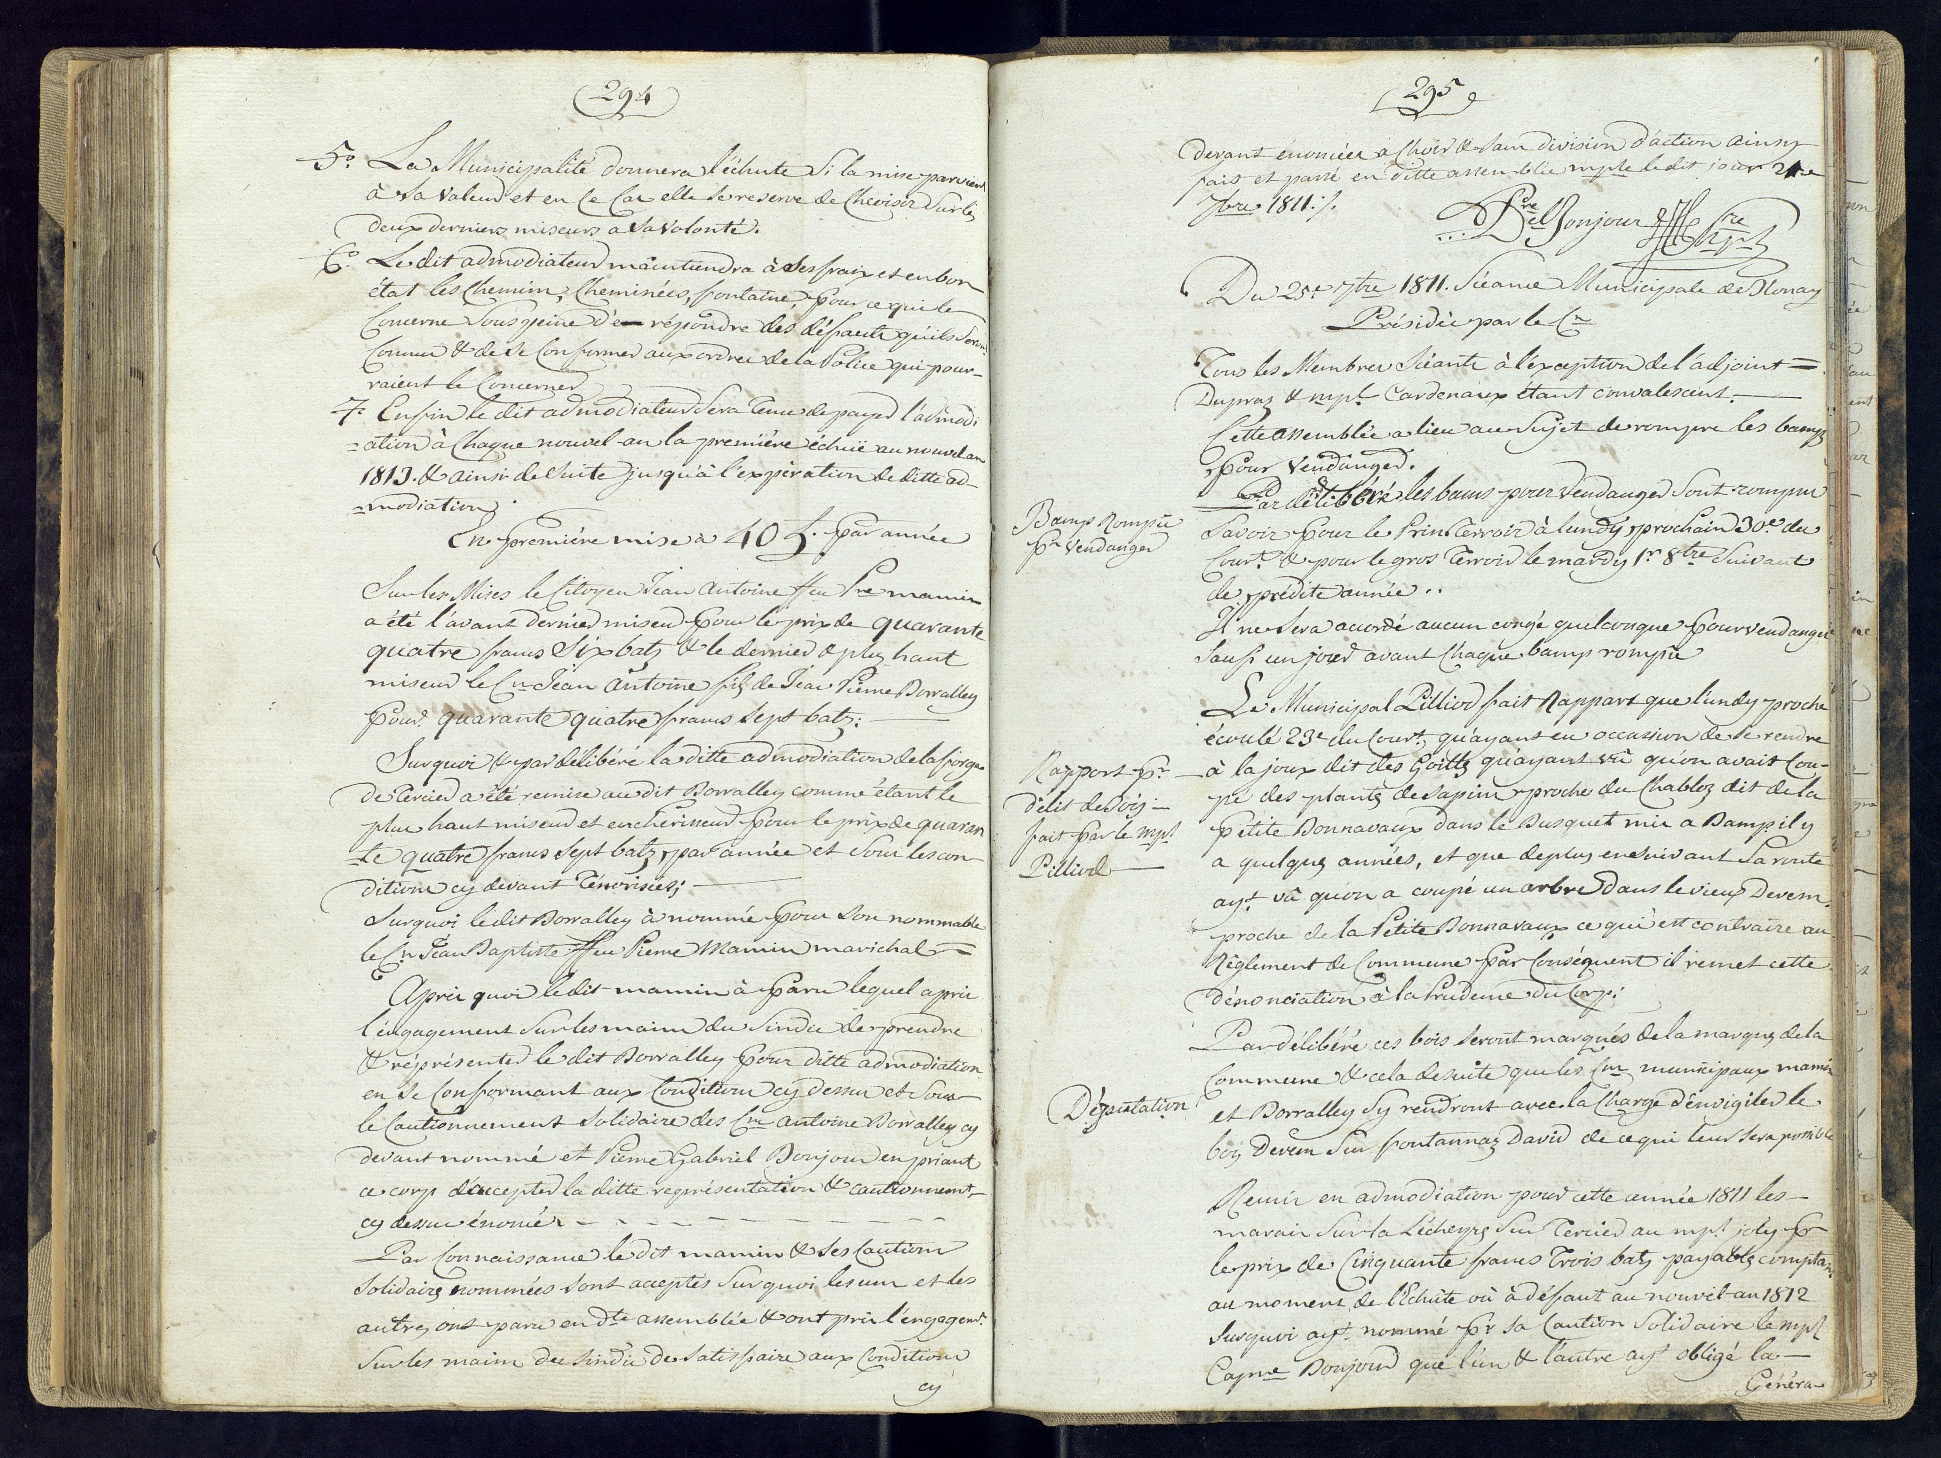 294
5.° La Municipalité donnera l'échute Si la mise parvient
à Sa Valeur et en Ce Cas elle Se reserve de Choisir Sur les
deux derniers miseurs à Sa Volonté.
6.° Le dit admodiateur maintiendra à Ses fraix et en bon
état les Chemins, Cheminées, fontaine, pour ce qui le
Concerne Sous peine d'en répondre des défauts qu'ils Seront
Connus & de Se Conformer aux ordres de la Police qui pour-
raient le Concerner
7.° Enfin le dit admodiateur Sera Tenu de payer l'admodi
-ation à Chaque nouvel-an la première échüe au nouvel an
1813. & ainsi de Suite jusqu'à l'expiration de ditte ad-
-modiation.
En première mise à 40 f. par année
Sur les Mises le Citoyen Jean Antoine ffeu Pre mamin
a été l'avant dernier miseur pour le prix de quarante
quatre francs Six batz & le dernier & plus haut
miseur le Cn Jean Antoine fils de Jean Pierre Borralley
pour quarante quatre francs Sept batz:
Surquoi & par délibéré la ditte admodiation de la forge
de Tercier a été remise au dit Borralley comme étant le
plus haut miseur et enchérisseur pour le prix de quaran
-te quatre francs Sept batz par année et Sous les con-
ditions cy devant Ténorisées;
Surquoi le dit Borralley à nommé pour Son nommable
le Cn Jean Baptiste ffeu Pierre Mamin marichal =
Après quoi le dit mamin à Paru lequel a pris
l'engagement Sur les mains du Sindic de prendre
& répresenter le dit Borralley pour ditte admodiation
en Se Conformant aux Conditions cy dessus et Sous
le Cautionnement Solidaire des Cns Antoine Borralley cy
devant nommé et Pierre Gabriel Bonjour en priant
ce corp d'accepter la ditte représentation & cautionnemt
cy dessus énoncés
Par Connaissance le dit mamin & Ses Cautions
Solidaires nommées Sont acceptés Surquoi les uns et les
autres ont paru en dte assemblée & ont pris l'engagemt
Sur les mains du Sindic de Satisfaire aux Conditions
cy
295
devant énoncées à Choix & Sans division d'action ainsy
fait et passé en ditte assemblée mple le dit jour 21e
7bre 1811./.
Pre Gel Bonjour Sre
mpl
Du 25e 7bre 1811. Séance Municipale de Blonay
Présidée par le Cn
Tous les Membres Séants à l'éxception de l'adjoint =
Dupraz & mpl Cardenaux étant convalescent.
Cette assemblée a lieu au Sujet de rompre les bamps
pour Vendanger.
Bamps Rompus
pr Vendanger
Par délibéré les bams pour Vendanger Sont rompu
Savoir pour le Prin Terroir à lundy prochain 30e du
Court & pour le gros Terroir le mardy 1r 8bre Suivant
de prédite année..
Il ne Sera accordé aucun congé quelconque pour vendanger
Sauf un jour avant Chaque bamp rompu
Rapport pr
délit de Bois
fait par le mpl
Pilliod
Le Municipal Pilliod fait Rapport que lundy proche
écoulé 23e du Court qu'ayant eu occasion de Se rendre
à la joux dit des Goitts qu'ayant vû qu'on avait Cou-
pé des plantes de Sapins proche du Chablez dit de la
Petite Bonnavaux dans le Busquet mis a Bamp il y
a quelques années, et que deplus en Suivant Sa route
ayt vû qu'on a coupé un arbre dans le vieux Devens
proche de la Petite Bonnavaux ce qui est contraire au
Règlement de Commune par Conséquent il remet cette
dénonciation à la Prudence du Corp:
Députation
Par délibéré ces bois Seront marqués de la marque de la
Commune & cela de Suite que les Cns municipaux mamin
et Borralley Sy rendront avec la Charge d'envigiler le
bois Devens Sur fontannaz David de ce qui leur Sera possible
Remis en admodiation pour cette année 1811 les
marais Sur la Lécheyre Sur Tercier au mpl joly pr
le prix de Cinquante francs Trois batz payables comptant
au moment de l'Echute où à défaut au nouvel-an 1812
Surquoi ayt nommé pr Sa Caution Solidaire le mpl
Capne Bonjour que l'un & l'autre ayt obligé la
Généra-